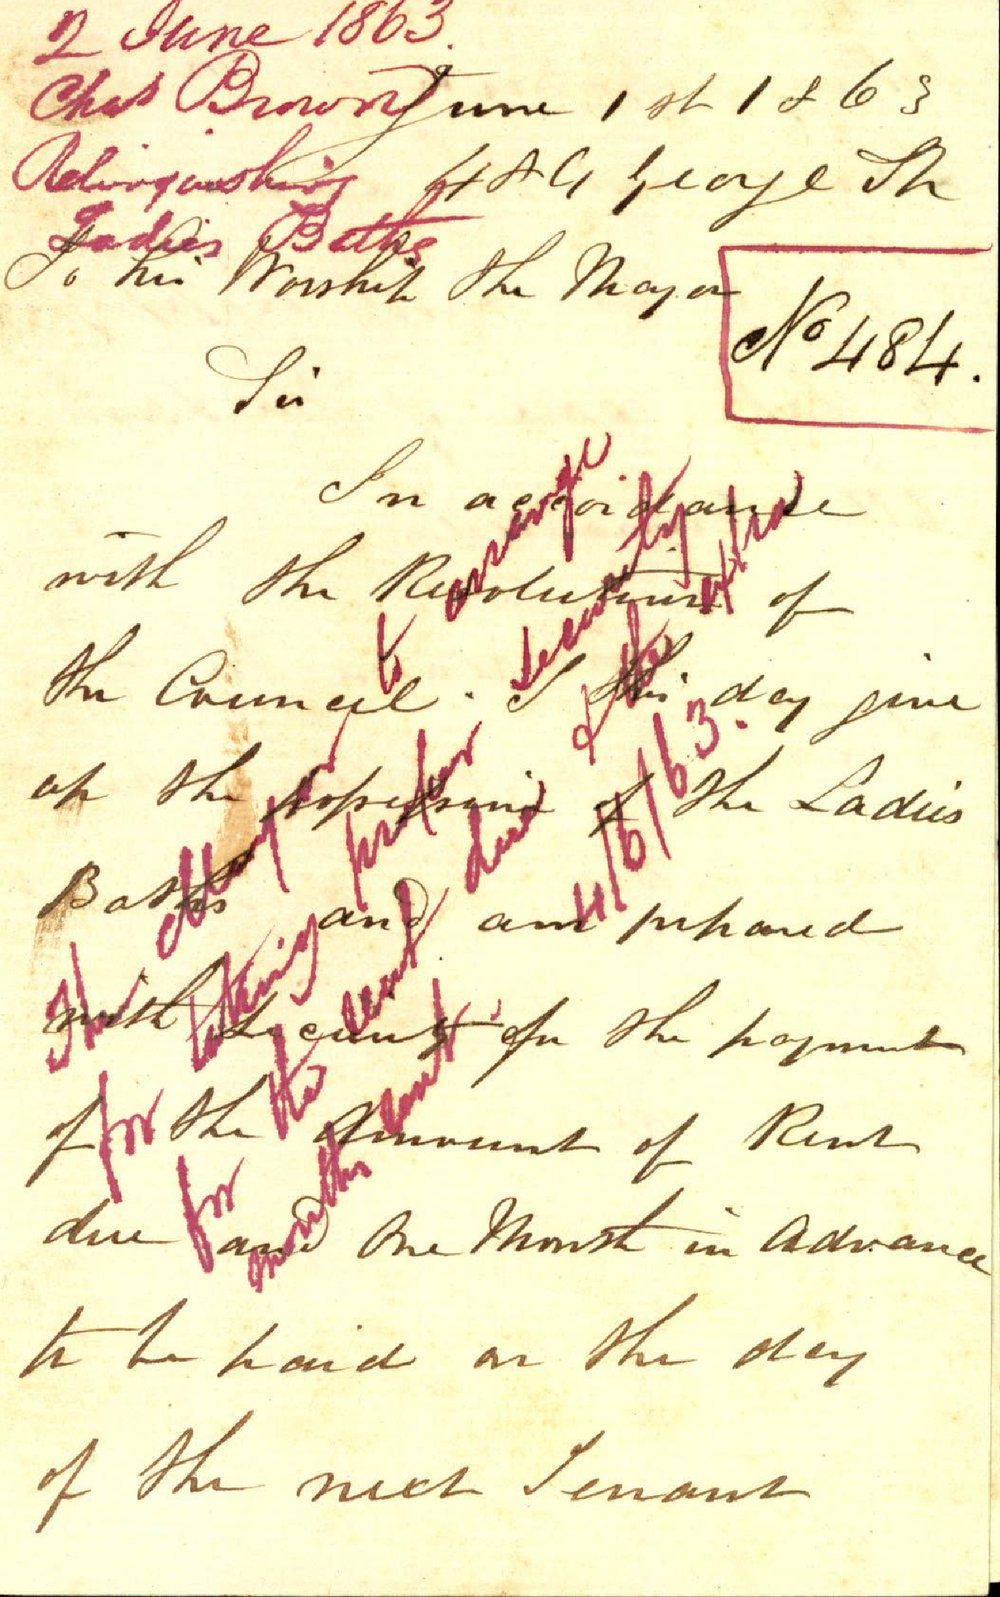 2 June 1863.
Chas Brown
Relinquishing
Ladies Baths
June 1st 1863
484 George St
To his Worship the Mayor
No 484.
Sir
In accordance
with the Resolution of
the Council. I this day give
up the possession of the Ladies
Baths and am prepared
with Security for the payment
of the Amount of Rent
due and One Month in Advance
to be paid on the day
of the next Tenant
The Mayor to arrange
for taking proper security
for the rent due & the extra
months rent.
4/6/63.